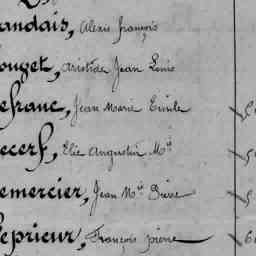 andais, Alexis françois
ouget, Aristide Jean Louis
efranc, Jean Marie Emile
ecerf, Elie Augustin M
emercier, Jean M
eprieur, François pierre